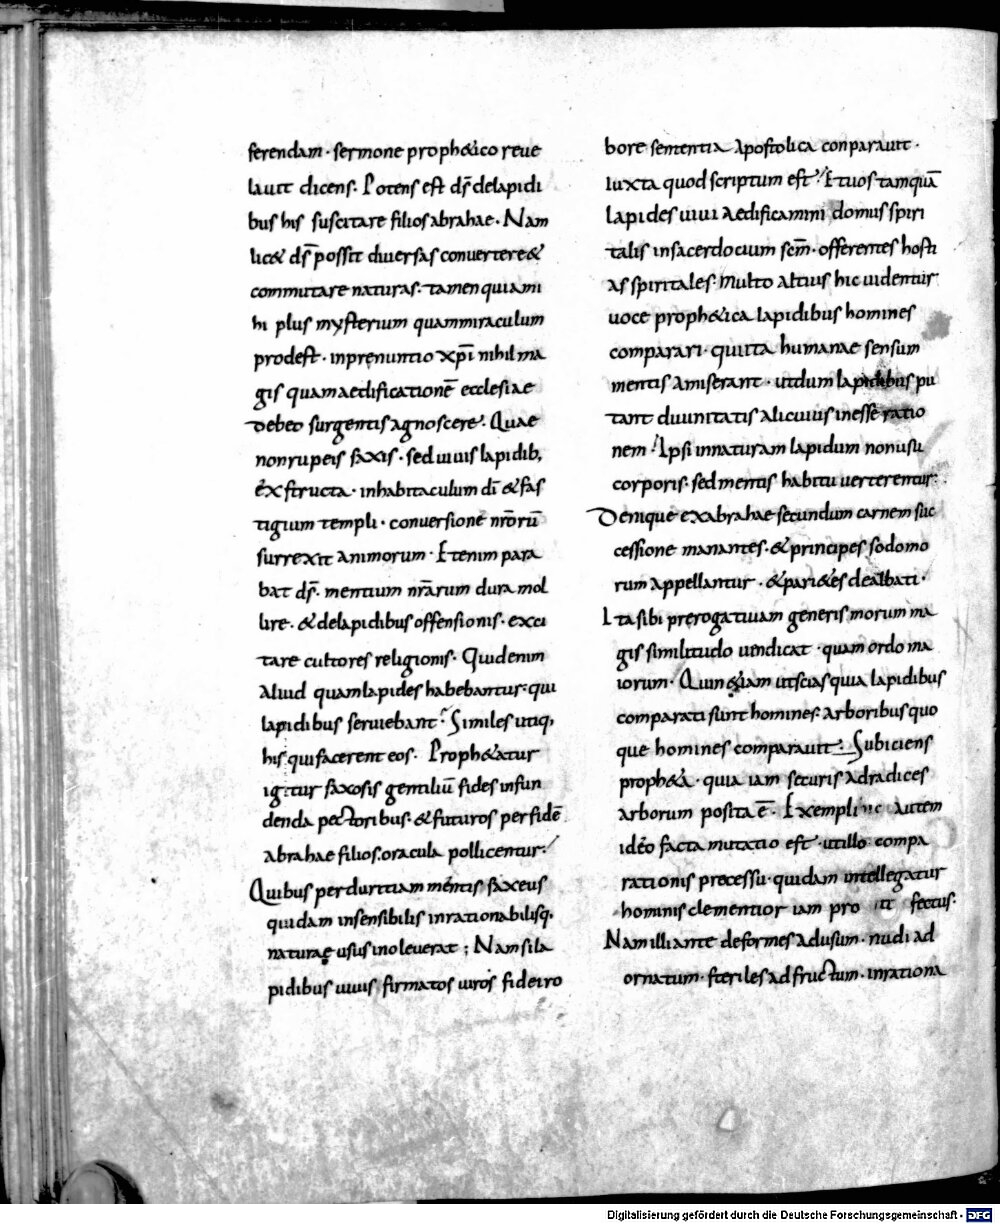 ferendam · sermone prophetico reue
lauit dicens · Potens est dς̄ delapidi
bus his suscitare filios abrahae · Nam
lic& ds̄ possit diuersas conuertere &
commutare naturas · tamen quia mi
hi plus mysterium quam miraculum
prodest · in prenuntio xp̄i nihil ma
gis quam aedificationē ecclesiae
debeo surgentis agnoscere · Quae
non rupeis saxis · sed uiuis lapidib;
exstructa · in habitaculum dī & fas
tigium templi · conuersione nr̄orū
surrexit animorum · Etenim para
bat ds̄ · mentium nr̄arum dura mol
lire · & delapidibus offensionis · exci
tare cultores religionis · Quid enim
aliud quam lapides habebantur · qui
lapidibus seruiebant · Similes utiq;
his qui facerent eos · Proph&atur
igitur saxosis gentiliū fides infun
denda pectoribus · & futuros per fidē
abrahae filios oracula pollicentur ·
Quibus per duritiam mentis saxeus
quidam insensibilis inrationabilisq;
naturae usus inoleuerat ; Nam si la
pidibus uiuis firmatos uiros fidei ro
bore sententia apostolica conparauit ·
Iuxta quod scriptum est · Et uos tamquā
lapides uiui aedificamini domus spiri
talis in sacerdocium scm̄ · offerentes hosti
as spiritales · multo altius hic uidentur
uoce proph&ica lapidibus homines
comparari · qui ita humanae sensum
mentis amiserant · ut dum lapidibus pu
tant diuinitatis alicuius inesse ratio
nem · Ipsi in naturam lapidum non usu
corporis · sed mentis habitu uerterentur ·
Denique ex abrahae secundum carnem suc
cessione manantes · & principes sodomo
rum appellantur · & pari&es dealbati ·
Ita sibi prerogatiuam generis morum ma
gis similitudo uindicat · quam ordo ma
iorum · Quin &iam ut scias quia lapidibus
comparati sunt homines · arboribus quo
que homines comparauit · Subiciens
proph&a · quia iam securis ad radices
arborum posita ē · Exempli autem
ideo facta mutatio est · ut illo compa
rationis precessu · quidam intellegatur
hominis clementior iam pro fectus ·
Nam illi ante deformes ad usum · nudi ad
ornatum · steriles ad fructum · inrationa
Digitalisierung gefördert durch die Deutsche Forschungsgemeinschaft - DFG